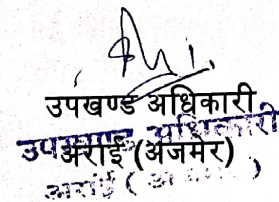 उपखण्ड अधिकारी
उपखण्ड अधिकारी
अराई (अजमेर)
अराई (